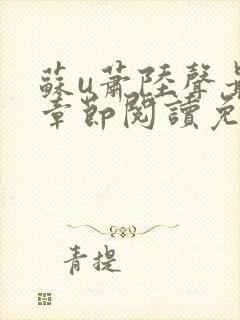 蘇u蕭陸聲
章節閱讀免
青提